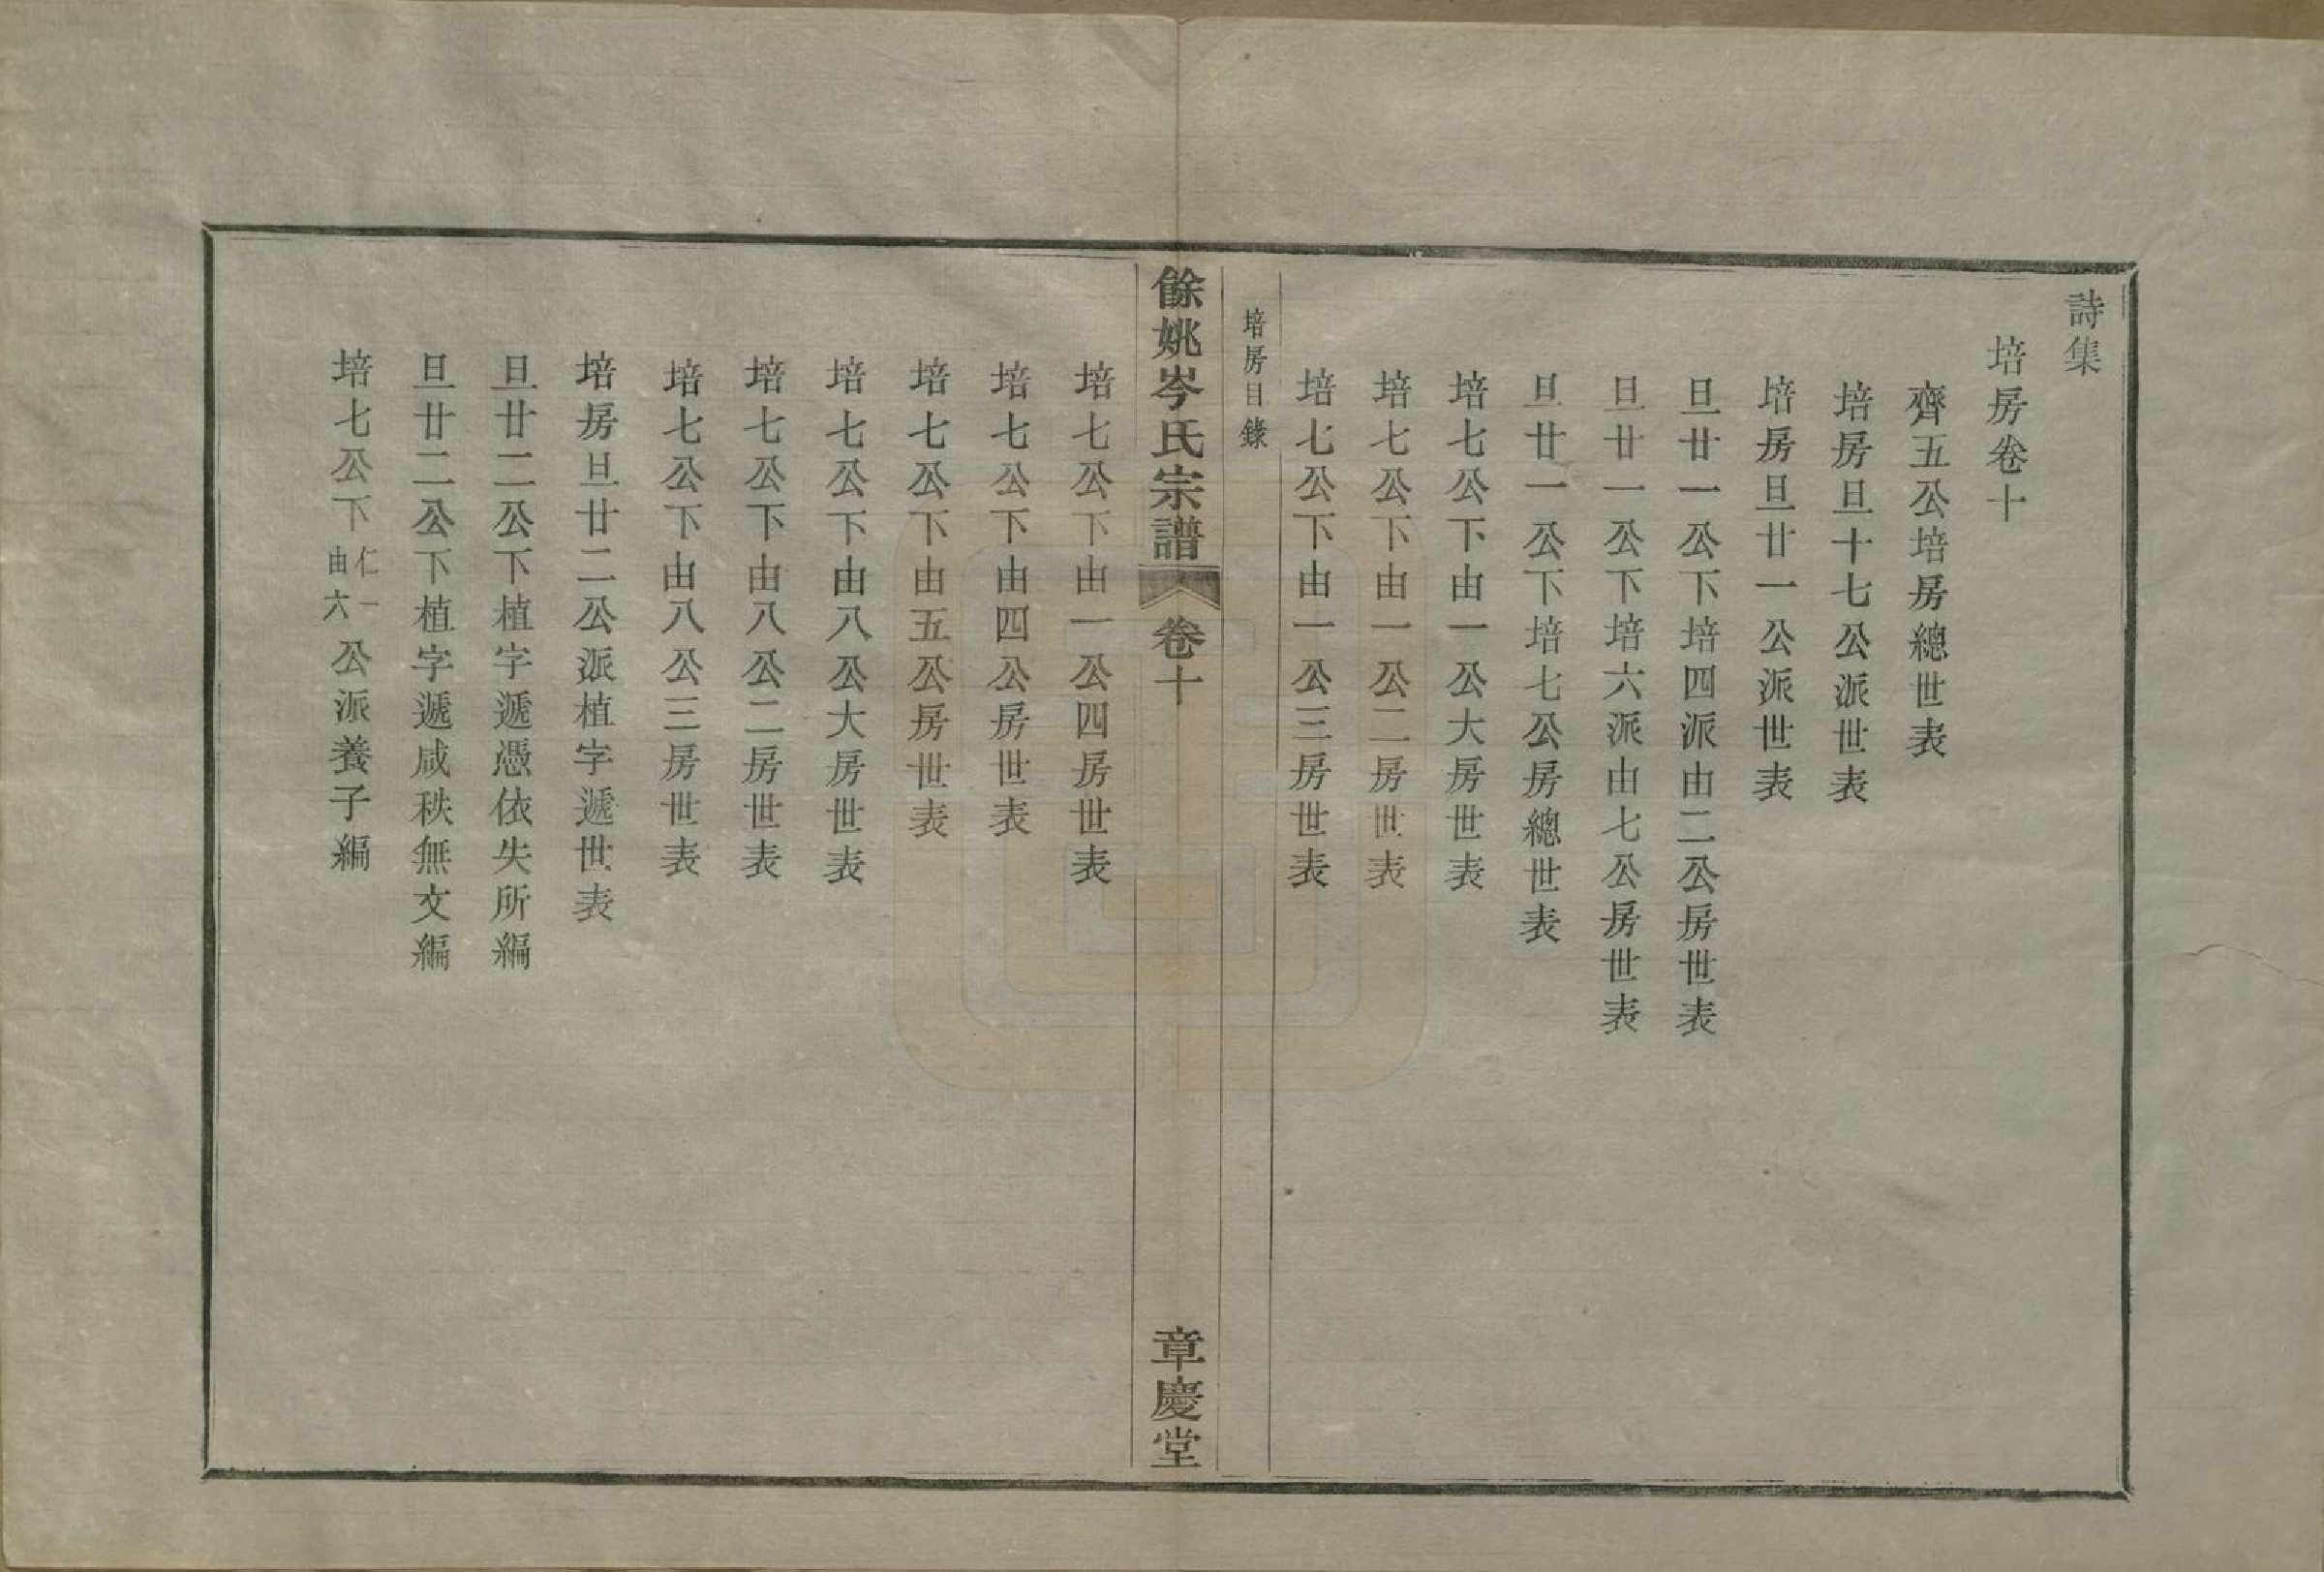 詩集
培房卷十
齊五公培房總世表
培房旦十七公派世表
培房旦廿一公派世表
旦廿一公下培四派由二公房世表
旦廿一公下培六派由七公房世表
旦廿一公下培七公房總世表
培七公下由一公大房世表
培七公下由一公二房世表
培七公下由一公三房世表
培房目錄
餘姚岑氏宗譜
卷十
章慶堂
培七公下由一公四房世表
培七公下由四公房世表
培七公下由五公房世表
培七公下由八公大房世表
培七公下由八公二房世表
培七公下由八公三房世表
培房旦廿二公派植字遞世表
旦廿二公下植字遞憑依失所編
旦廿二公下植字遞咸秩無文編
培七公下仁一由六公派養子編